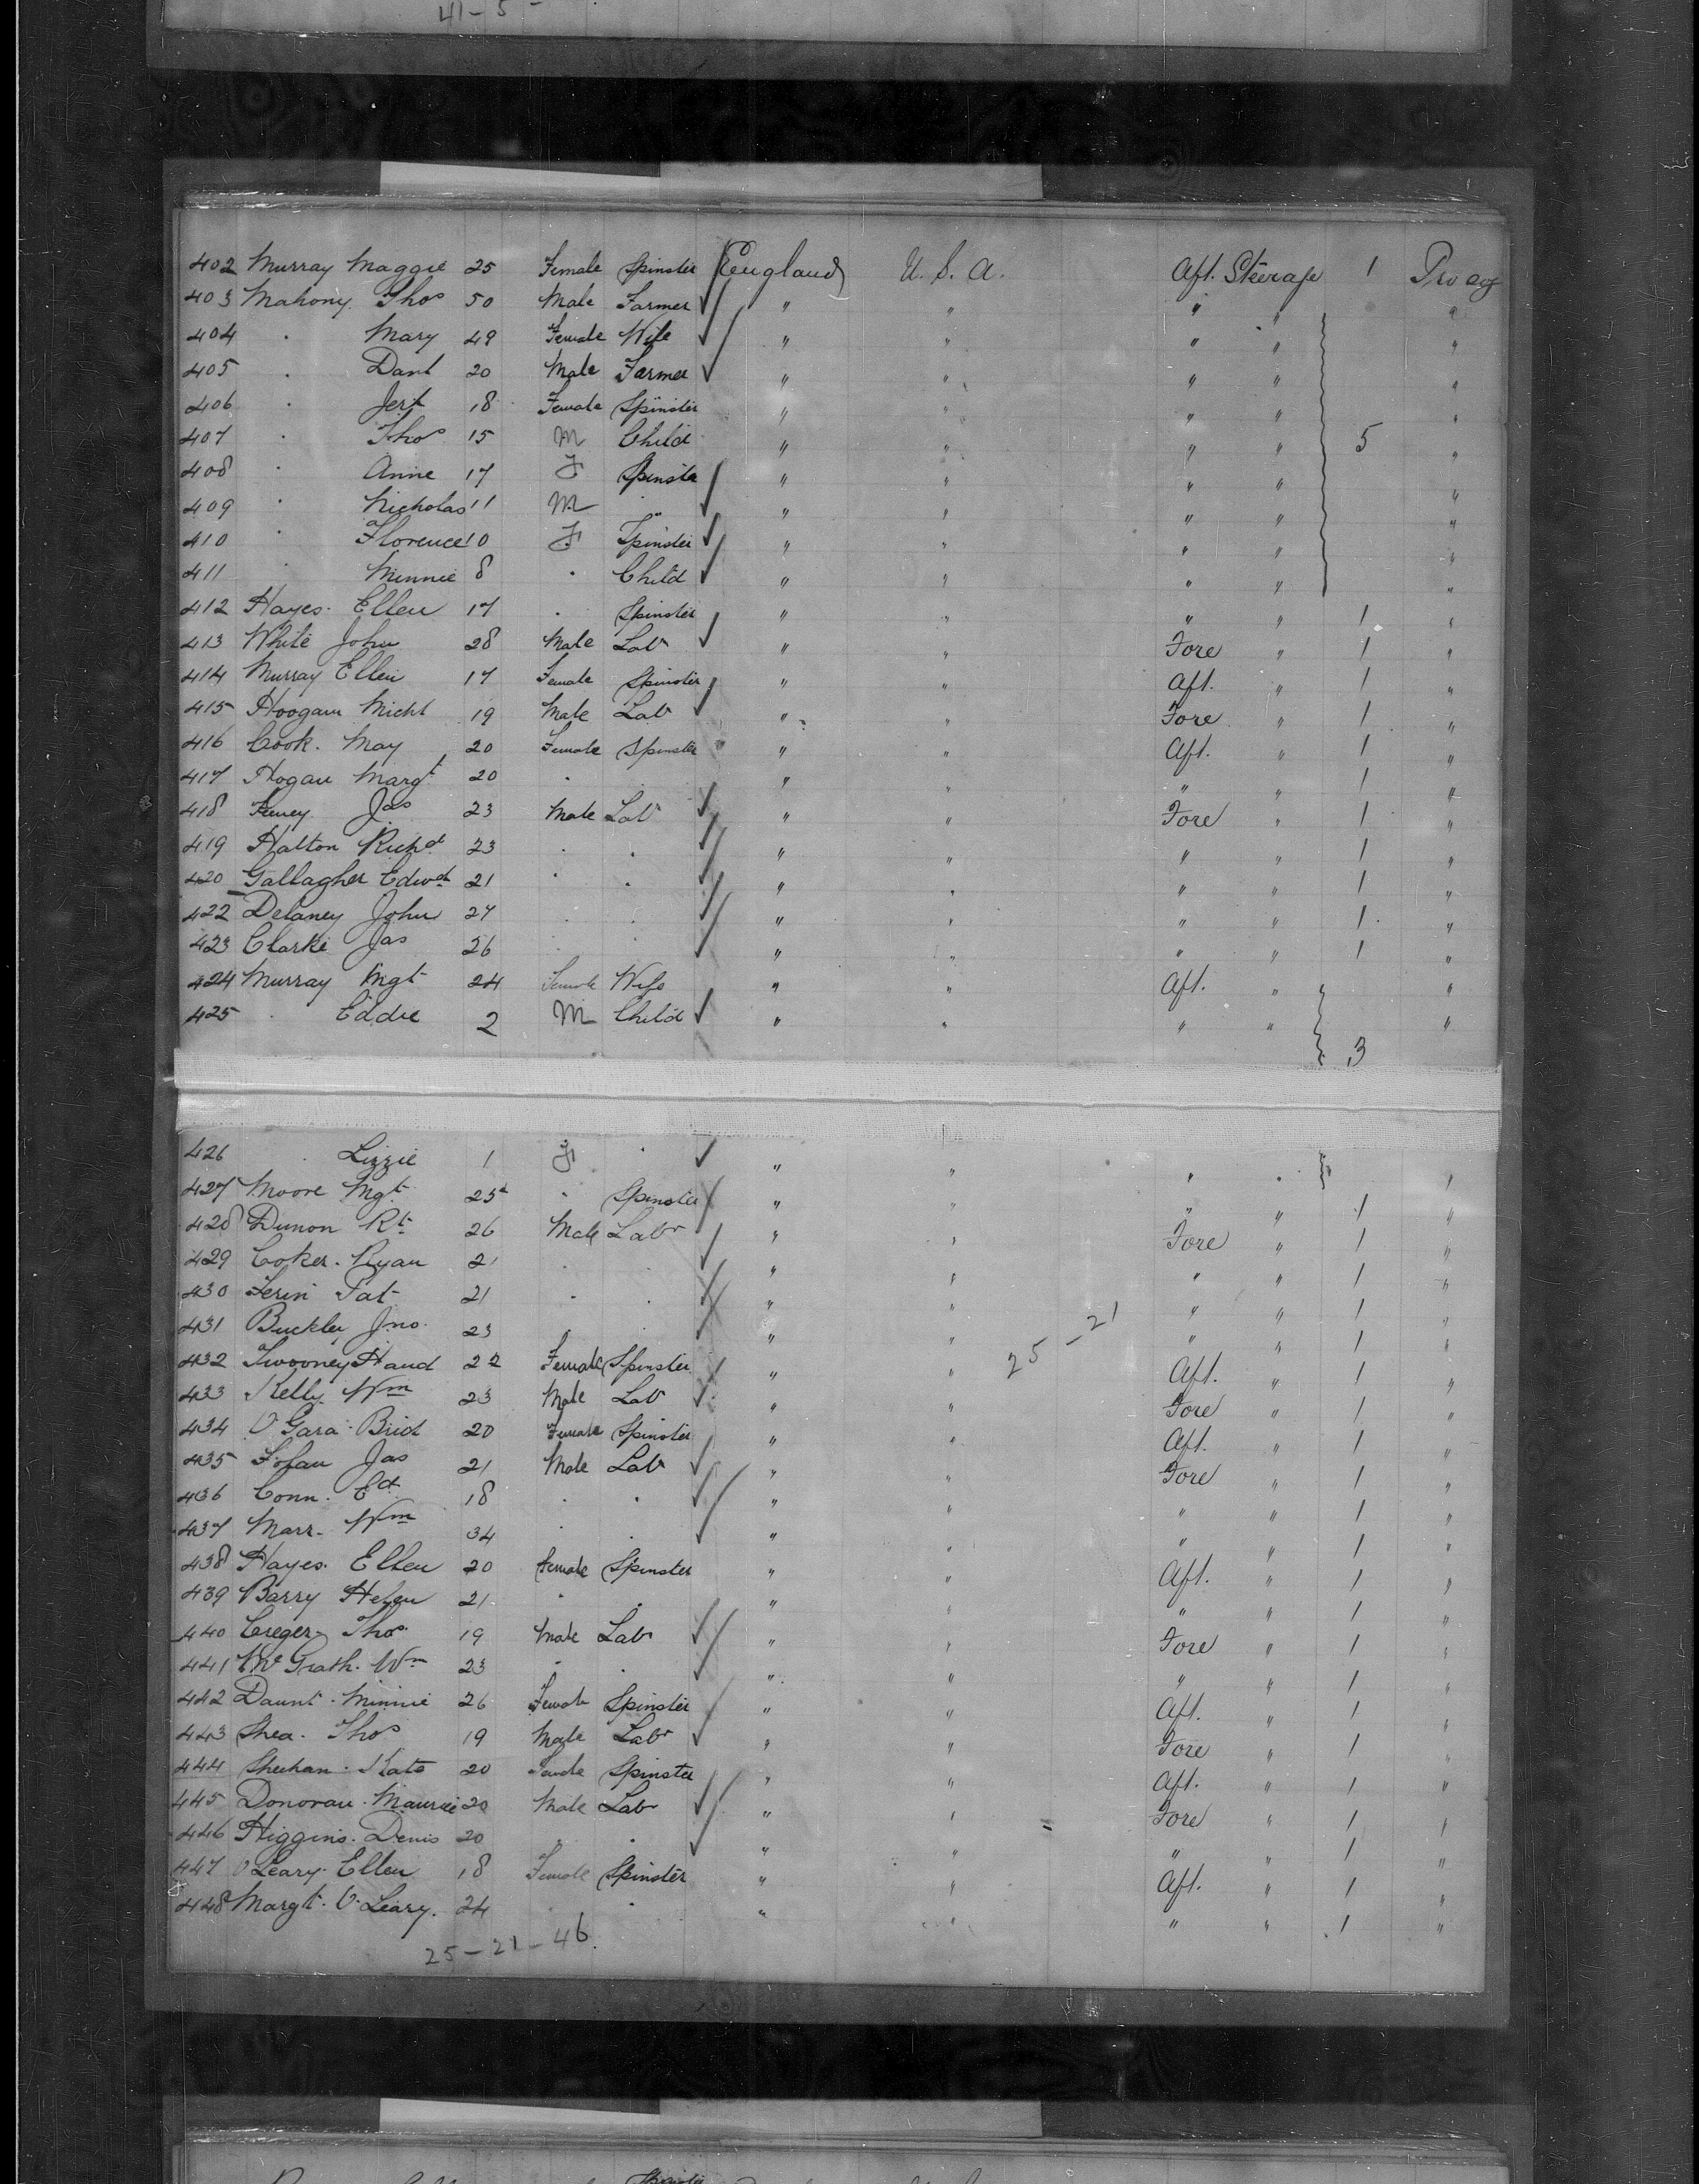 41-5-
402 Murray Maggie 25 Female Spinster England U.S.A. Aft. Steerage 1
403 Mahony Thos 50 Male Farmer " " " " "
404 . Mary 49 Female Wife " " " " "
405 . Danl 20 Male Farmer " " " " "
406 . 18 Female Spinster " " " " "
407 . Thos 15 M Child " " " " 5 "
408 . Anne 17 F Spinster " " " " "
409 . Nicholas 11 M " " " " " "
410 . Florence 10 F Spinster " " " " "
411 . Minnie 8 . Child " " " " "
412 Hayes. Ellen 17 . Spinster " " " " 1 "
413 White John 28 Male Lab " " Fore " 1 "
414 Murray Ellen 17 Female Spinster " " Aft. " 1 "
415 Michl 19 Male Lab " " Fore " 1 "
416 Cook. May 20 Female Spinster " " Aft. " 1 "
417 Hogan Margt 20 . " " " " 1 "
418 Jas 23 Male Labr " " Fore " 1 "
419 Halton Richd 23 . . " " " " 1 "
420 Gallagher Edwd 21 . . " " " " 1 "
422 Delaney John 27 . . " " " " 1 "
423 Clarke Jas 26 . . " " " " 1 "
424 Murray Mgt 24 Female Wife " " Aft. " "
425 . Eddie 2 M Child " " " " "
3
426 . Lizzie 1 F . " " " " "
427 Moore Mgt 25 . Spinster " " " " 1 "
428 Dunon Rt 26 Male Labr " " Fore " 1 "
429 Coker. Ryan 21 . . " " " " 1 "
430 Pat 21 . . " " " " 1 "
431 Buckley Jno. 23 . . " " 25-21 " " 1 "
432 22 Female Spinster " " Aft. " 1 "
433 Kelly Wm 23 Male Lab " " Fore " 1 "
434 O'Gara. Bridt 20 Female Spinster " " Aft. " 1 "
435 Jas 21 Male Lab " " Fore " 1 "
436 Conn. Ed 18 . . " " " " 1 "
437 Marr. Wm 34 . . " " " " 1 "
438 Hayes. Ellen 20 Female Spinster " " Aft. " 1 "
439 Barry Helen 21 . . " " " " 1 "
440 Creger. Thos. 19 Male Labr " " Fore " 1 "
441 McGrath. Wm 23 . . " " " " 1 "
442 Daunt. Minnie 26 Female Spinster " " Aft. " 1 "
443 Shea. Thos 19 Male Labr " " Fore " 1 "
444 Sheehan. Kate 20 Female Spinster " " Aft. " 1 "
445 Donovan. Maurice 20 Male Labr " " Fore " 1 "
446 Higgins. Denis 20 . . " " " " 1 "
447 O'Leary. Ellen 18 Female Spinster " " Aft. " 1 "
448 Margt. O'Leary. 24 . . " " " " 1 "
25-21-46.